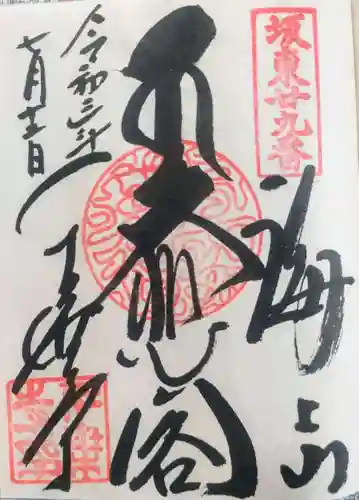 坂東廿九番
海上山
大悲閣
千葉寺
令和三年
七月日